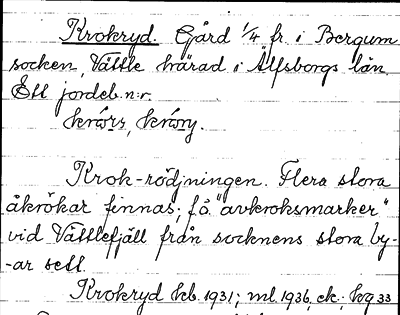 Krokryd. Gård 1/4 fr. i Bergum
socken, Vättle härad i Älfsborgs län.
Ett jordeb.n:r.
krórs, króry.
Krok-rödjningen. Flera stora
åkrökar finnas; fö "avkroksmarker"
vid Vättlefjäll från socknens stora by-
-ar sett.
Krokryd kb. 1931; ml. 1936, ek.; kg 33